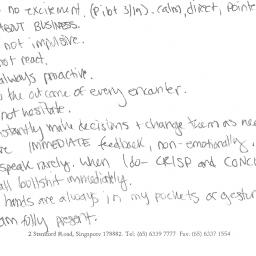 no excitement. (Pilot 3/1n). calm, direct, pointe
ABOUT BUSINESS.
not impulsive.
not react.
always proactive.
the outcome of every encounter.
not hesitate.
nstantly make decisions + change them as ne
IMMEDIATE feedback, non-emotionally.
speak rarely. When I do - CRISP and CONC
all bullshit immediately.
hands are always in my pockets or gestur
am fully present.
2 Stamford Road, Singapore 178882. Tel: (65) 6339 7777 Fax: (65) 6337 1554